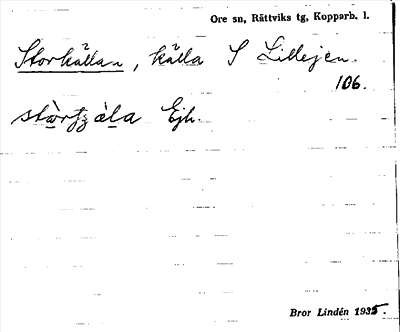 Ore sn, Rättviks tg, Kopparb. l.
Storkällan, källa S Lillejen.
106.
Ejh.
Bror Lindén 1935.